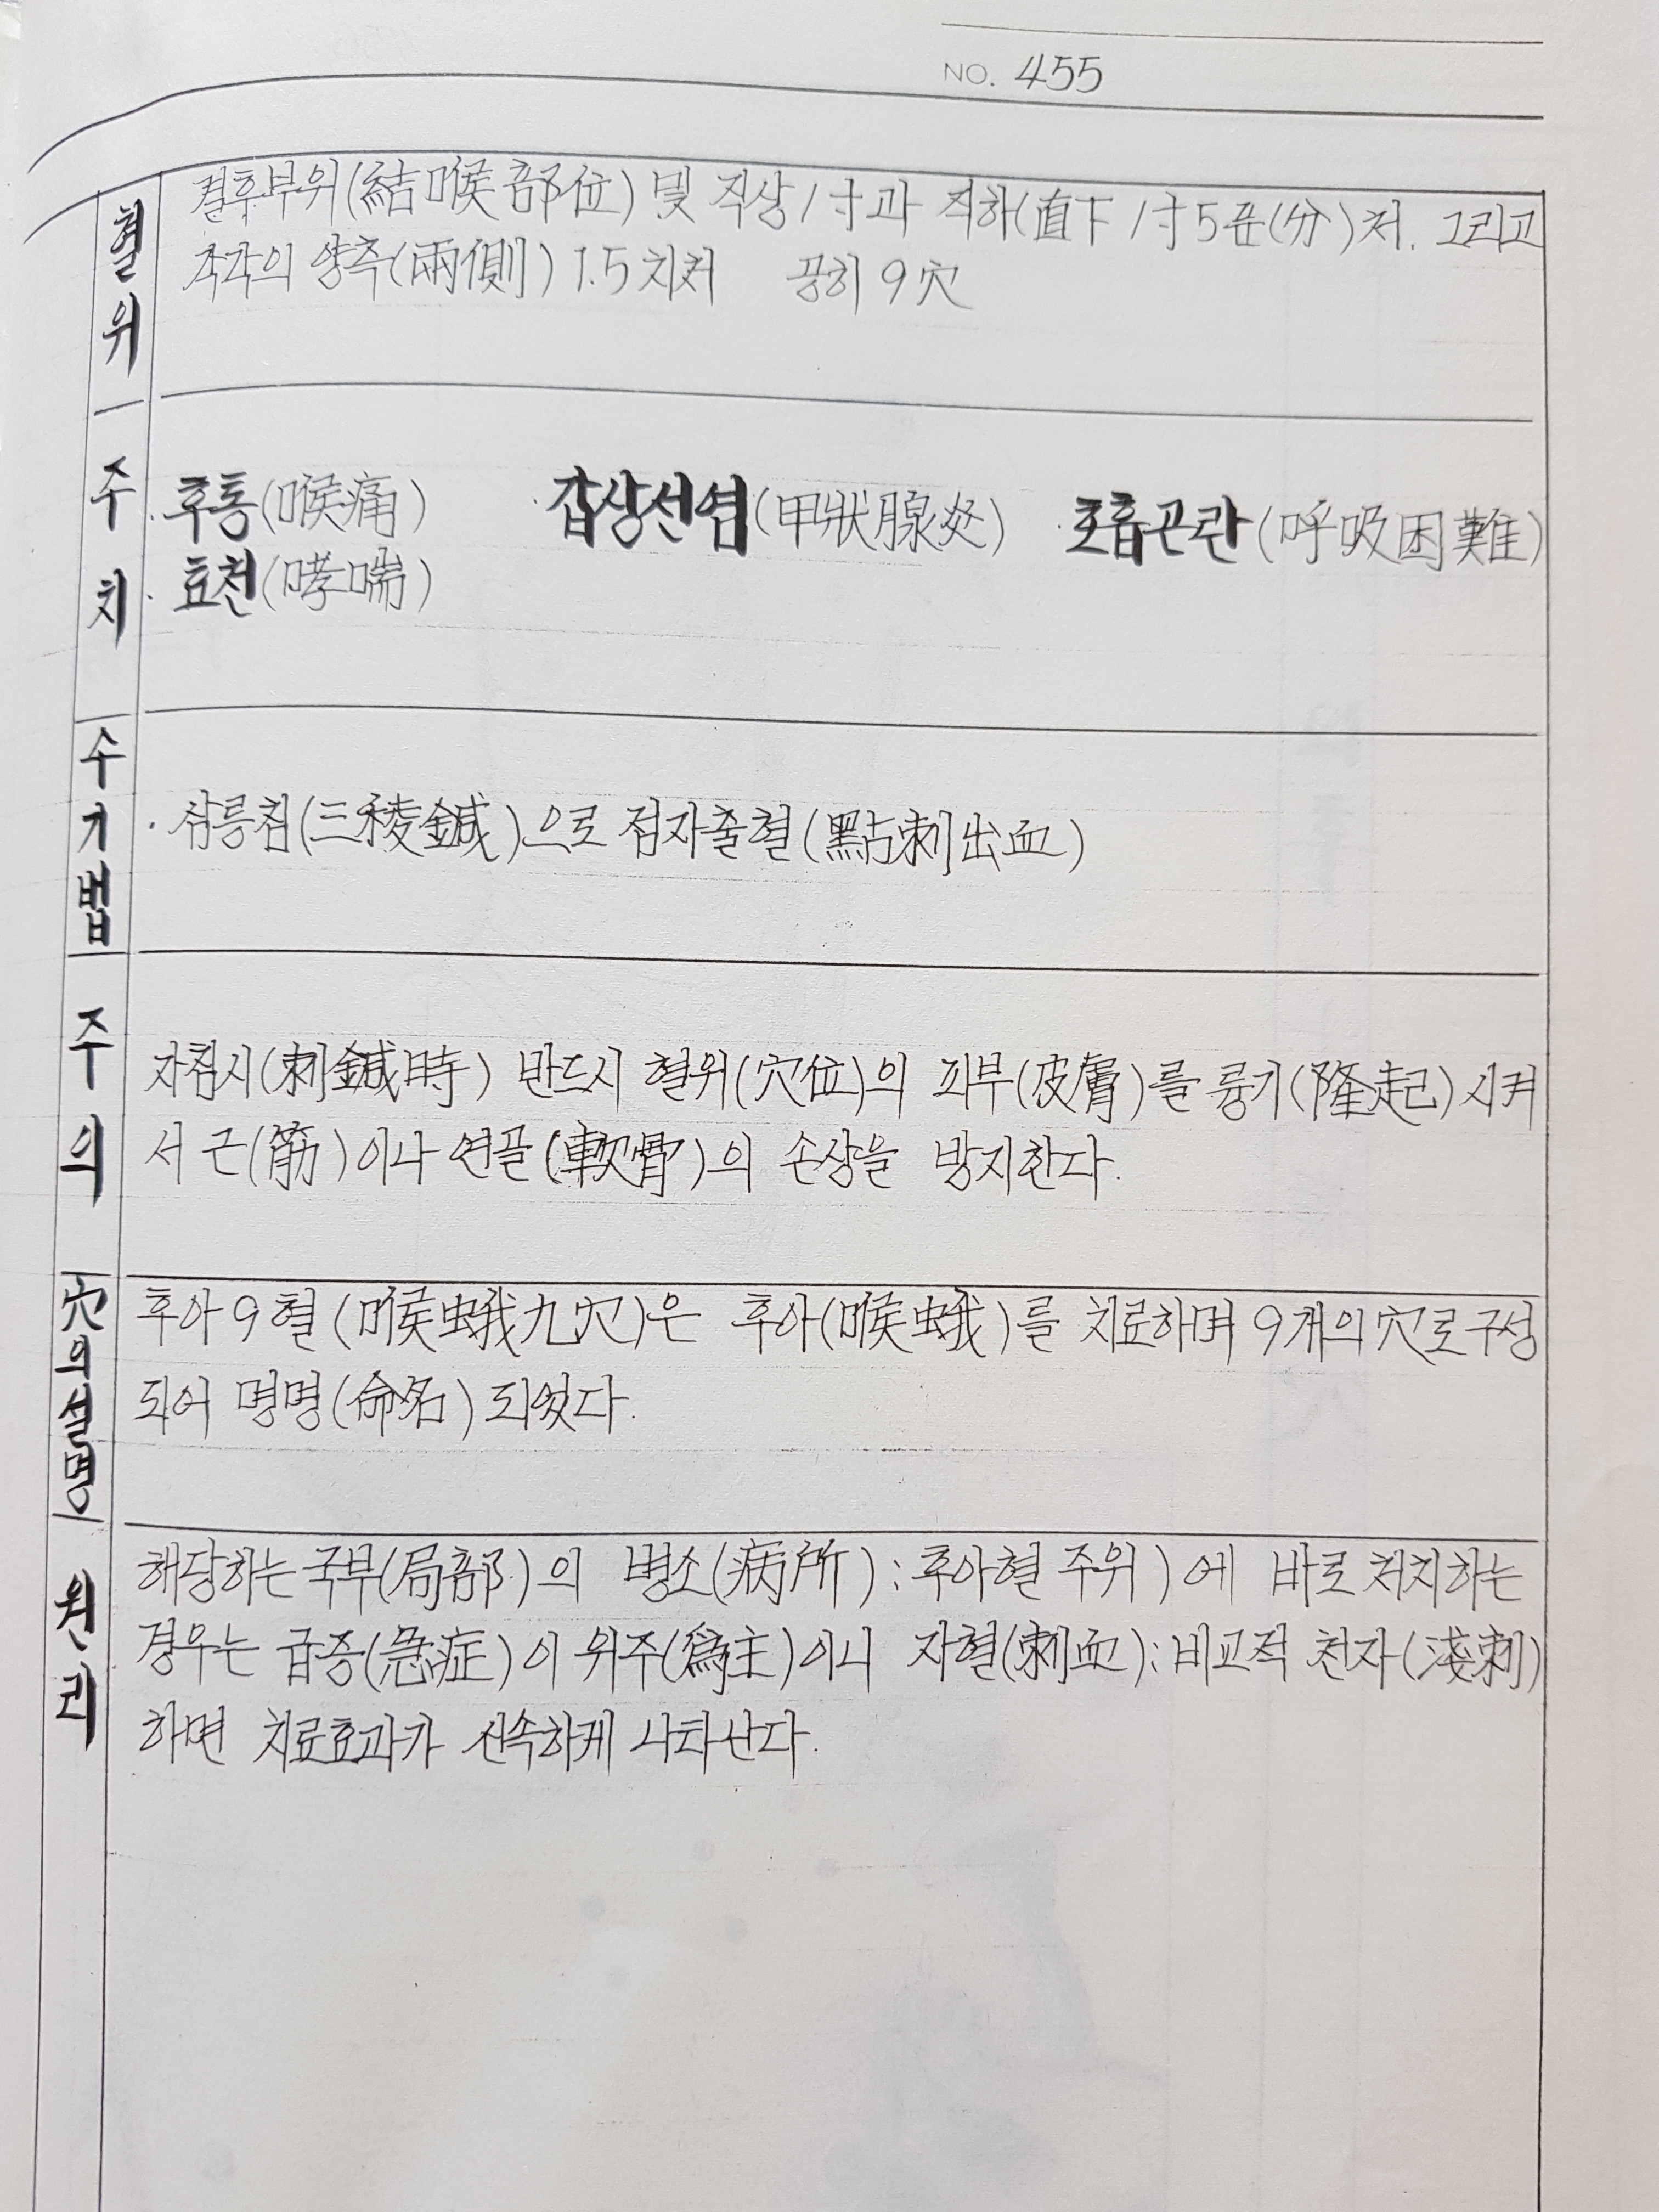 NO. 455
혈위
결후부위(結喉部位) 및 직상 1寸과 직하(直下 1寸5푼(分)처. 그리고
각각의 양측(兩側) 1.5치처 공히 9穴
주치
· 후통(喉痛) · 갑상선염(甲狀腺炎) · 호흡곤란(呼吸困難)
· 효천(哮喘)
수기법
· 삼릉침(三稜鍼)으로 점자출혈(點刺出血)
주의
자침시(刺鍼時) 반드시 혈위(穴位)의 피부(皮膚)를 륭기(隆起)시켜
서 근(筋)이나 연골(軟骨)의 손상을 방지한다.
穴의 설명
후아9혈(喉蛾九穴)은 후아(喉蛾)를 치료하며 9개의 穴로 구성
되어 명명(命名)되었다.
원리
해당하는 국부(局部)의 병소(病所):후아혈 주위)에 바로 처치하는
경우는 급증(急症)이 위주(爲主)이니 자혈(刺血):비교적 천자(淺刺)
하면 치료효과가 신속하게 나타난다.